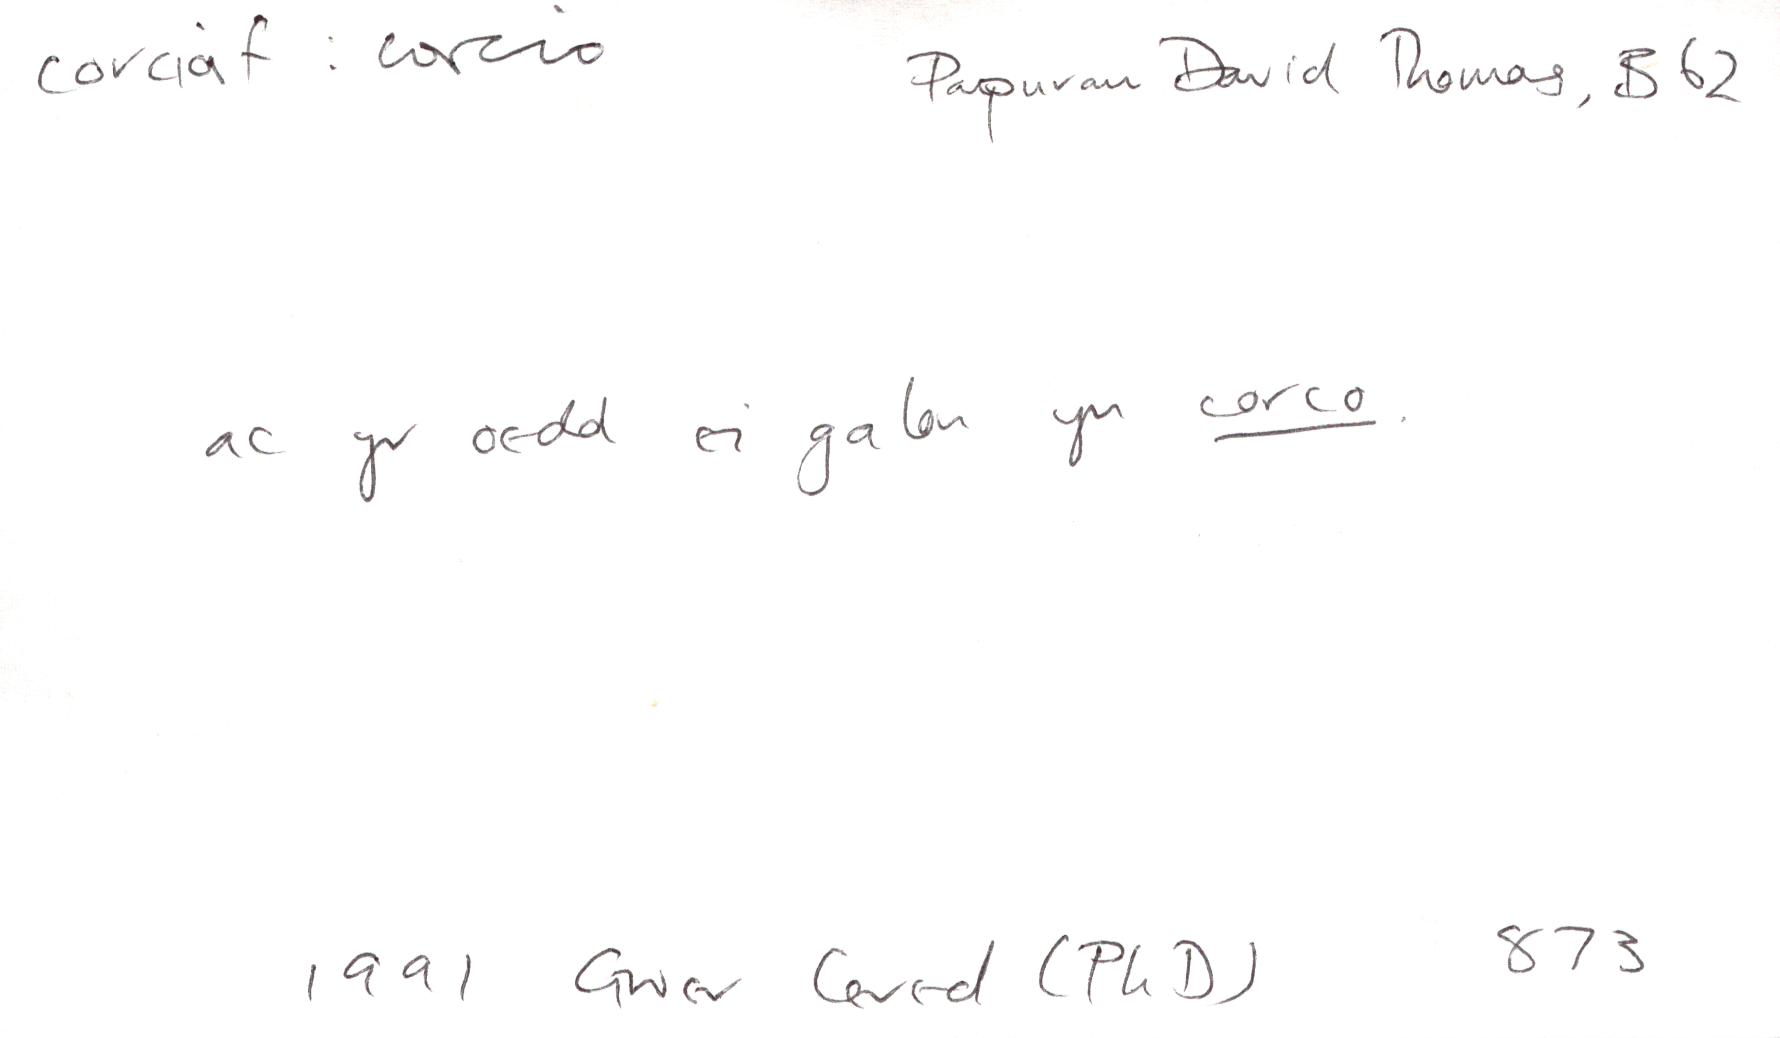 corciaf : corcio
Papurau David Thomas, B 62
ac yr oedd ei galon yn corco.
1991 Gwer Cered (PhD) 873